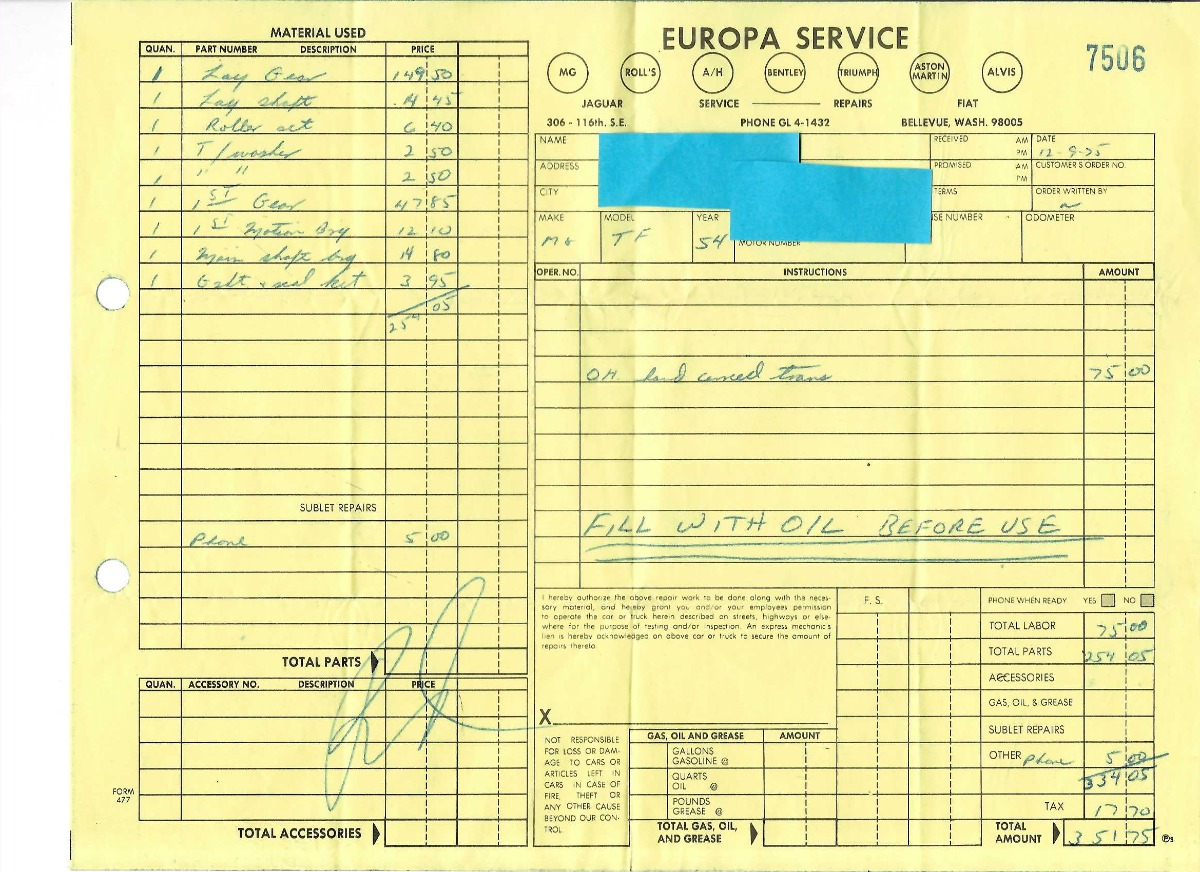 MATERIAL USED
QUAN. PART NUMBER DESCRIPTION PRICE
1 Lay Gear 149 50
1 Lay shaft 14 45
1 Roller set 6 40
1 T/washer 2 50
1 " " 2 50
1 1ST Gear 47 85
1 1ST Motion Brg 12 10
1 Main shaft brg 14 80
1 Gskt + seal kit 3 95
254 05
SUBLET REPAIRS
Phone 5 00
TOTAL PARTS
QUAN. ACCESSORY NO. DESCRIPTION PRICE
FORM 477
TOTAL ACCESSORIES
EUROPA SERVICE
7506
MG ROLL'S A/H BENTLEY TRIUMPH ASTON MARTIN ALVIS
JAGUAR SERVICE REPAIRS FIAT
306 - 116th. S.E. PHONE GL 4-1432 BELLEVUE, WASH. 98005
NAME RECEIVED AM PM DATE 12-9-75
ADDRESS PROMISED AM PM CUSTOMER'S ORDER NO.
CITY TERMS ORDER WRITTEN BY
MAKE MODEL YEAR MOTOR NUMBER SE NUMBER ODOMETER
MG TF 54
OPER. NO. INSTRUCTIONS AMOUNT
O.H. hand carried trans 75 00
FILL WITH OIL BEFORE USE
I hereby authorize the above repair work to be done along with the neces-
sary material, and hereby grant you and/or your employees permission
to operate the car or truck herein described on streets, highways or else-
where for the purpose of testing and/or inspection. An express mechanic's
lien is hereby acknowledged on above car or truck to secure the amount of
repairs thereto.
X
NOT RESPONSIBLE
FOR LOSS OR DAM-
AGE TO CARS OR
ARTICLES LEFT IN
CARS IN CASE OF
FIRE, THEFT OR
ANY OTHER CAUSE
BEYOND OUR CON-
TROL.
GAS, OIL AND GREASE AMOUNT
GALLONS GASOLINE @
QUARTS OIL @
POUNDS GREASE @
TOTAL GAS, OIL, AND GREASE
F. S.
PHONE WHEN READY YES NO
TOTAL LABOR 75 00
TOTAL PARTS 254 05
ACCESSORIES
GAS, OIL, & GREASE
SUBLET REPAIRS
OTHER Phone 5 00
334 05
TAX 17 70
TOTAL AMOUNT 351 75